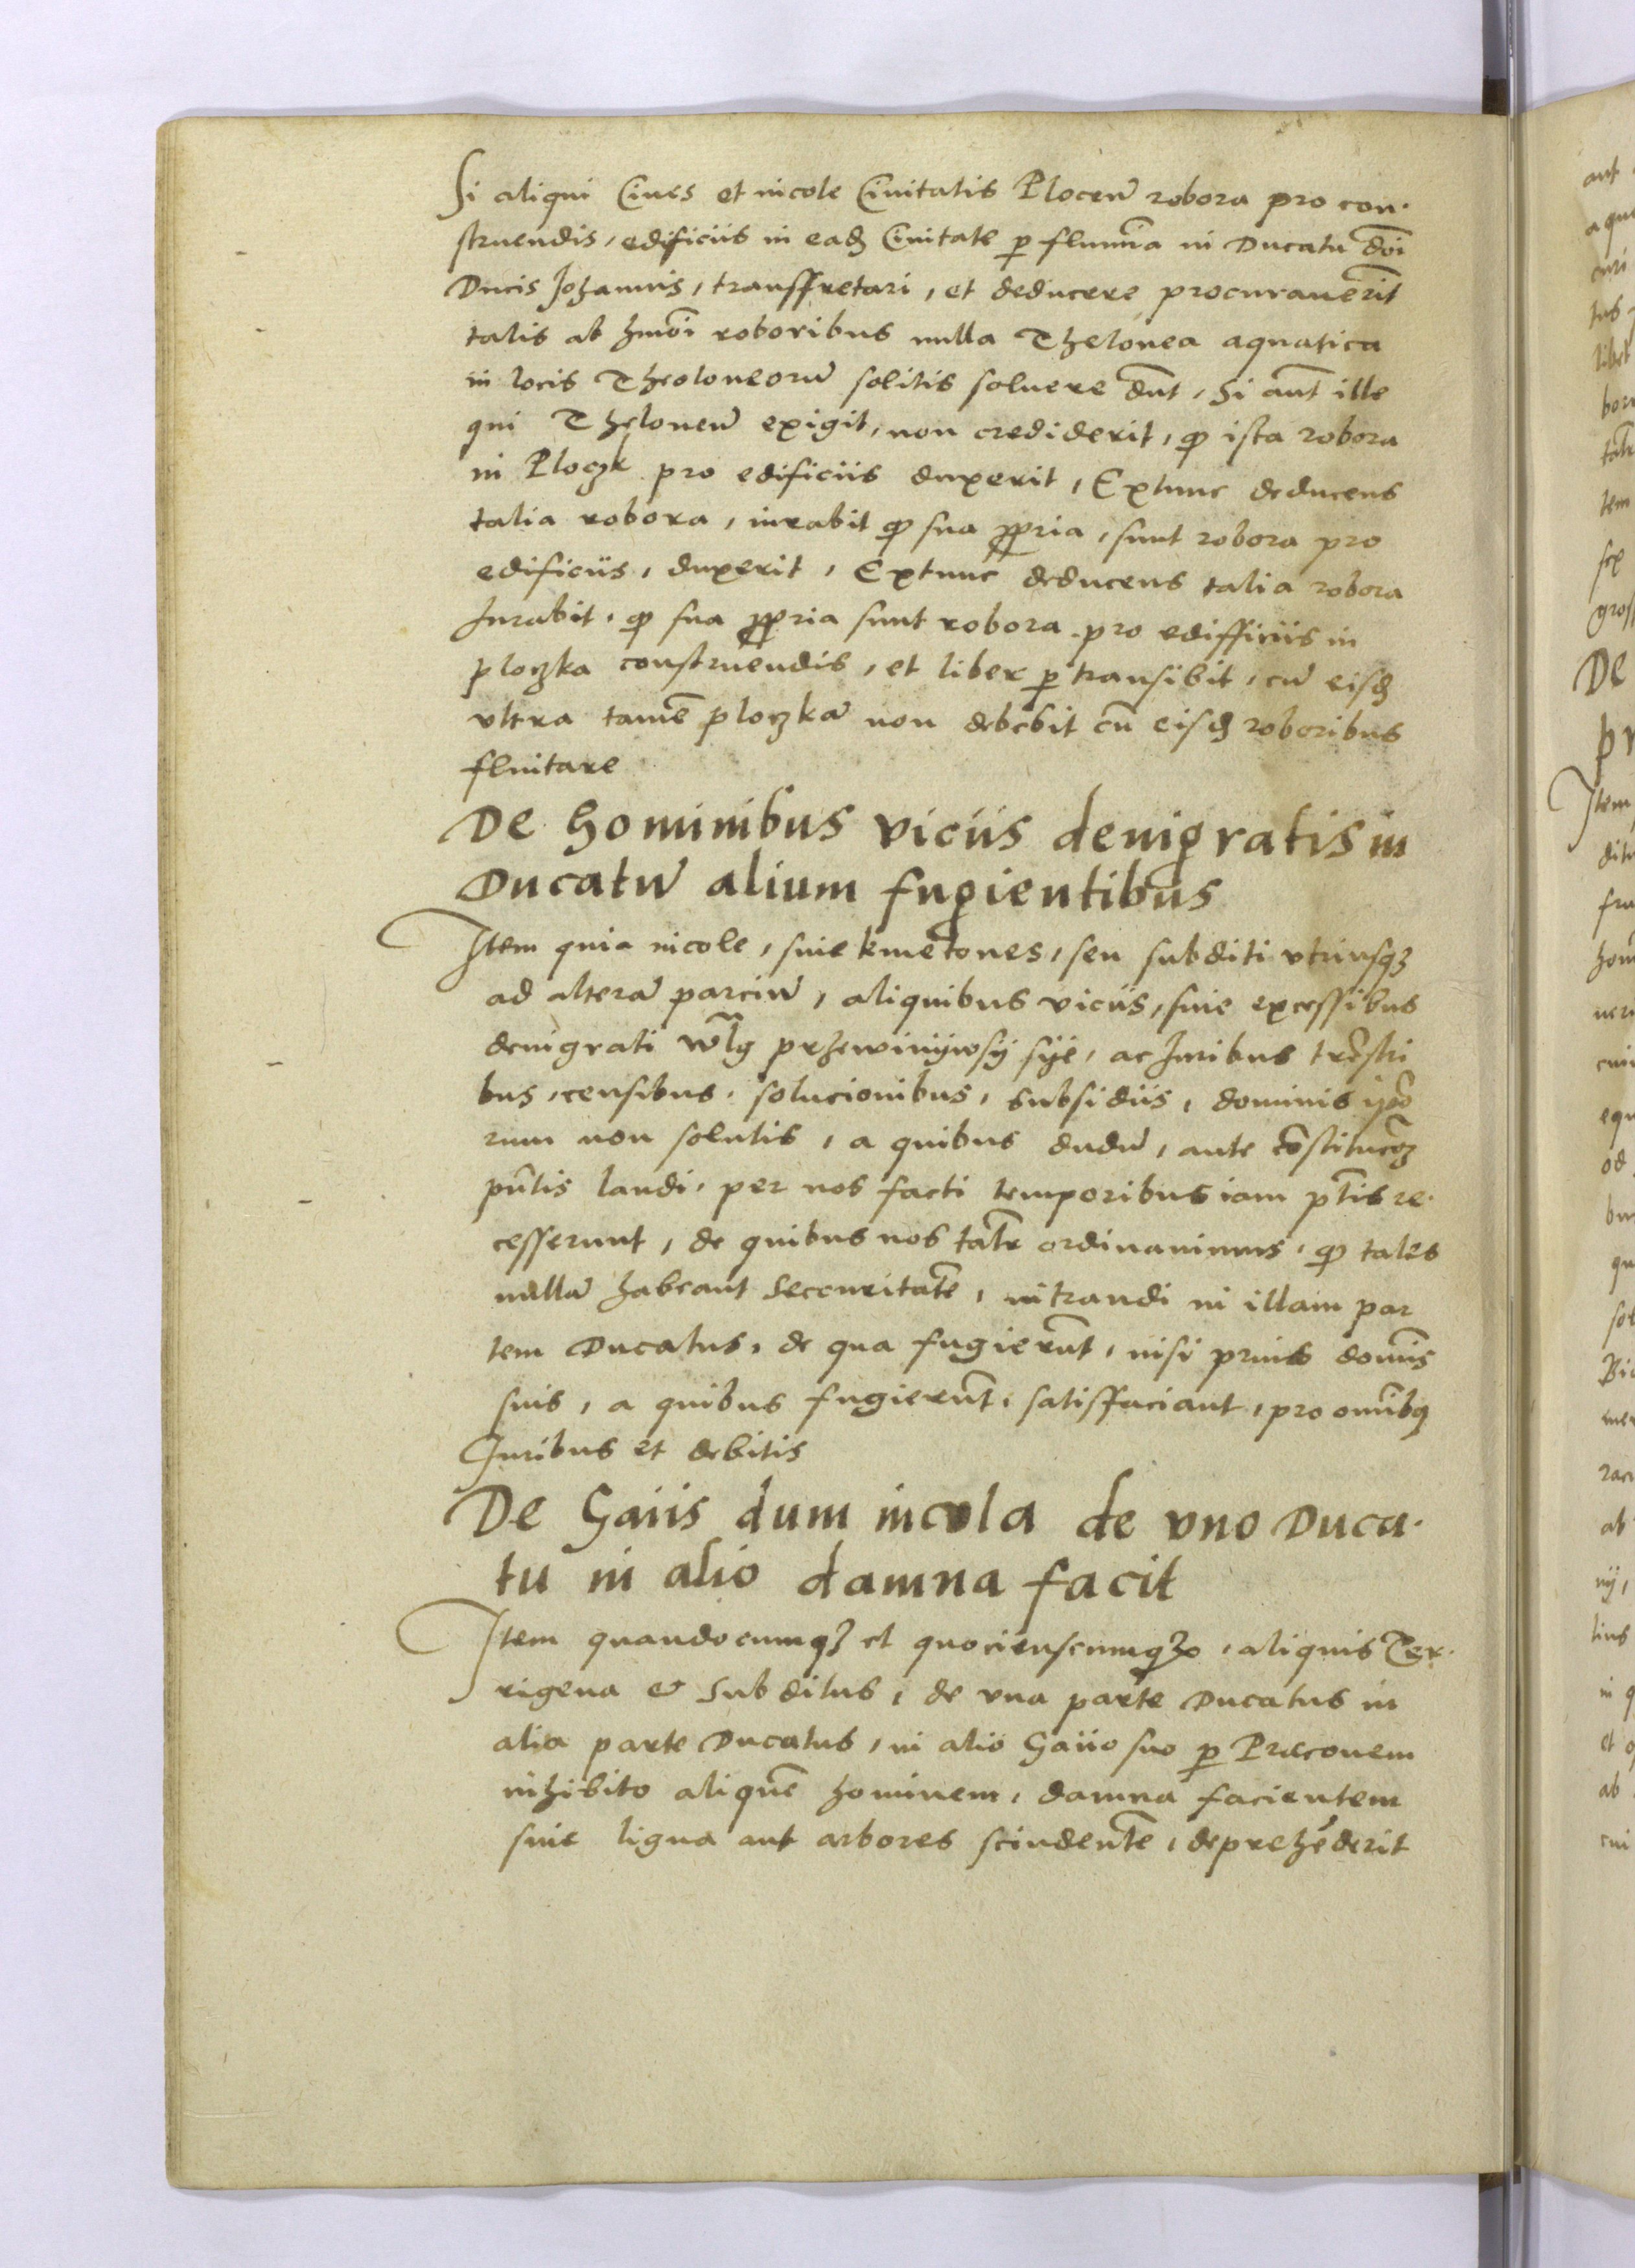 Si aliqui Ciues et incole Ciuitatis Plocen̄ robora pro con-
struendis, edificiis in eadȝ Ciuitate ꝑ flumīa in Ducatu dn̄i
Ducis Johannis, transffretari, et deducere procurauerīt
talis ab hmōi roboribus nulla Thelonea aquatica
in locis Theoloneorū solitis soluere dn̄t, Si aūt ille
qui Theloneū exigit, non crediderit, ꝙ ista robora
in Ploczk pro edificiis duxerit, Extunc deducens
talia robora, iurabit ꝙ sua ꝓpria, sunt robora pro
edificiis, duxerit, Extunc deducens talia robora
Jurabit, ꝙ sua ꝓpria sunt robora pro edifficiis in
ploczka construendis, et liber ꝑ transibit, cū eisdȝ
vltra tamē ploczkā non debebit cū eisdȝ roboribus
fluitare
De hominibus viciis denigratis in
Ducatū alium fugientibus
Item quia incole, siue kmetones, seu subditi vtriusqȝ
ad alterā parciū, aliquibus viciis, siue excessibus
denigrati wlg przewinijwsÿ sÿe, ac Juribus trēstri
bus, censibus, solucionibus, subsidiis, dominis ip̄o
rum non solutis, a quibus dudū, ante cōstitucōȝ
pn̄tis laudi, per nos facti temporibus iam pt̄is re-
cesserunt, de quibus nos talr̄ ordinauimus, ꝙ tales
nullā habeant Securitatē, intrandi in illam par
tem Ducatus, de qua fugierūt, nisi prius domīs
suis, a quibus fugierūt, satisffaciant, pro omībꝯ
Juribus et debitis
De Gaiis dum incola de vno Duca-
tu in alio damna facit
Item quandocumqȝ et quocienscumqȝ, aliquis Ter-
rigena & Subditus, de vna parte Ducatus in
alia parte Ducatus, in alio Gaiio suo ꝑ Præconem
inhibito aliquē hominem, damna facientem
siue ligna aut arbores scindentē, deprehēderit